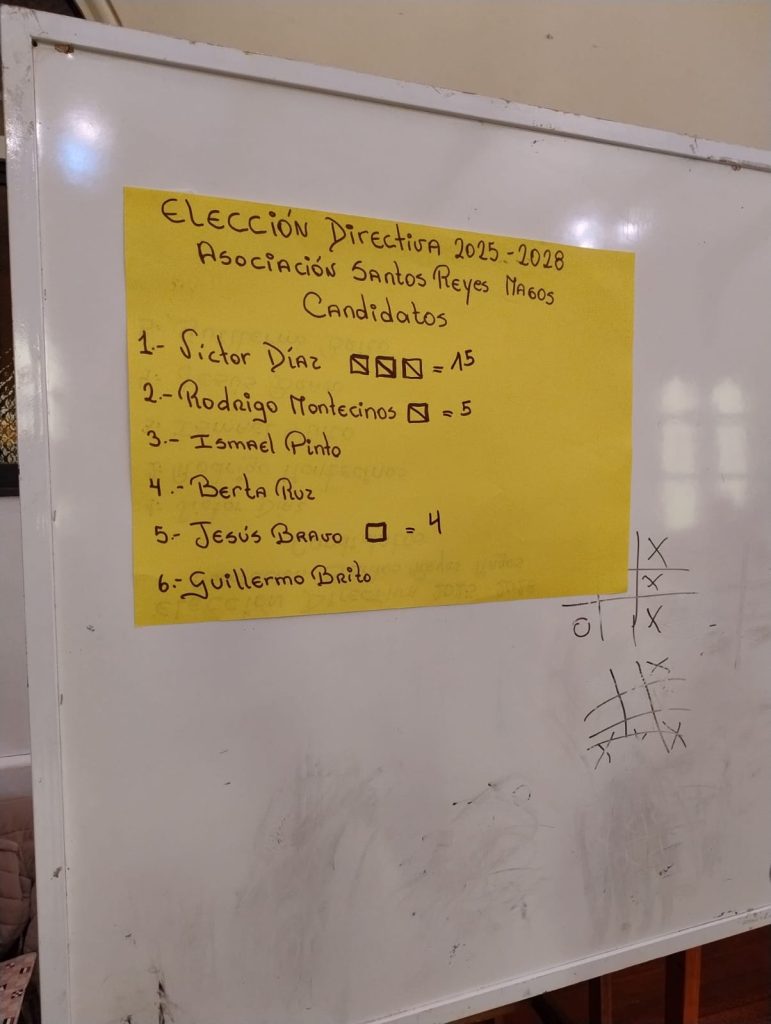 ELECCIÓN DIRECTIVA 2025.-2028
ASOCIACIÓN SANTOS REYES MAGOS
CANDIDATOS
1.- Síctor DÍAZ = 15
2.- Rodrigo Montecinos = 5
3.- ISMAEL Pinto
4.- BERTA RUZ
5.- JESÚS BRAVO = 4
6.- Guillermo BRITO
X
X
O X
X
X X